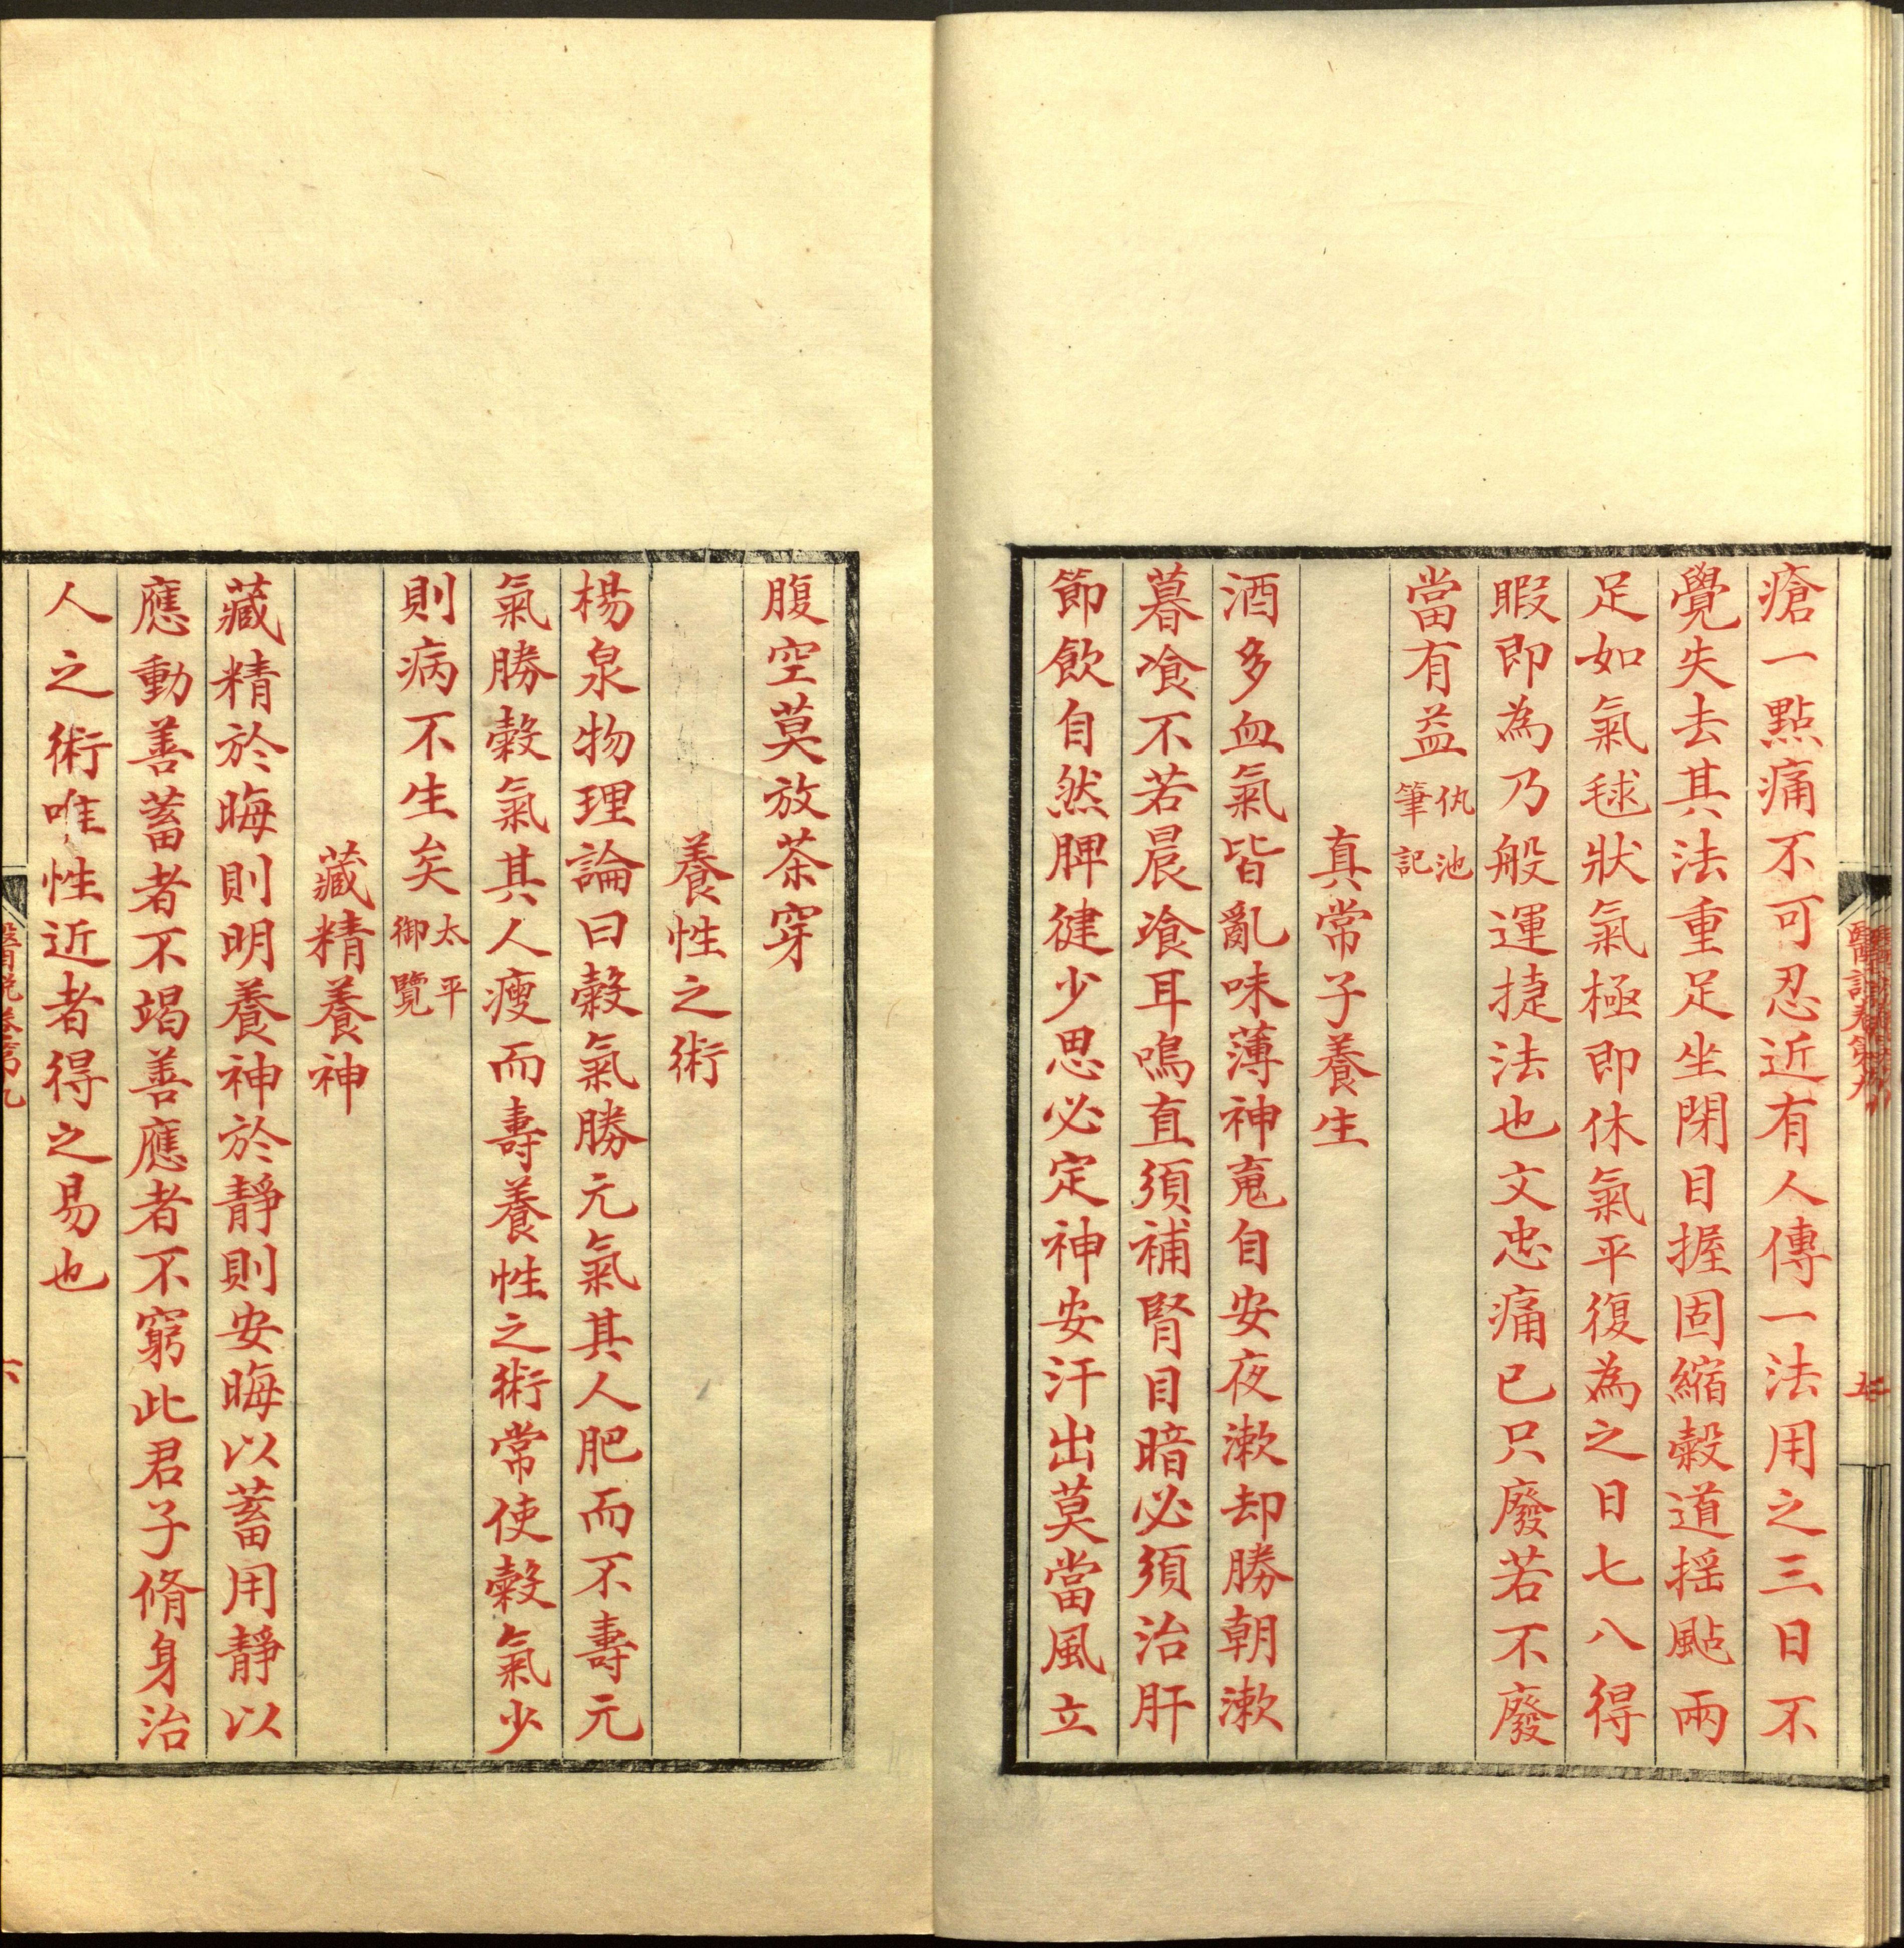 瘡一點痛不可忍近有人傳一法用之三日不
覺失去其法重足坐閉目握固縮糓道揺颭兩
足如氣毬狀氣極即休氣平復為之日七八得
暇即為乃般運捷法也文忠痛已只廢若不廢
當有益仇池筆記
真常子養生
酒多血氣皆亂味薄神䰟自安夜漱却勝朝漱
暮飡不若晨飡耳鳴直須補腎目暗必須治肝
節飲自然脾健少思必定神安汗出莫當風立
腹空莫放茶穿
養性之術
楊泉物理論曰糓氣勝元氣其人肥而不壽元
氣勝糓氣其人瘦而壽養性之術常使糓氣少
則病不生矣太平御覽
藏精養神
藏精於晦則明養神於靜則安晦以蓄用靜以
應動善蓄者不竭善應者不窮此君子脩身治
人之術唯性近者得之易也
醫說卷第九
六